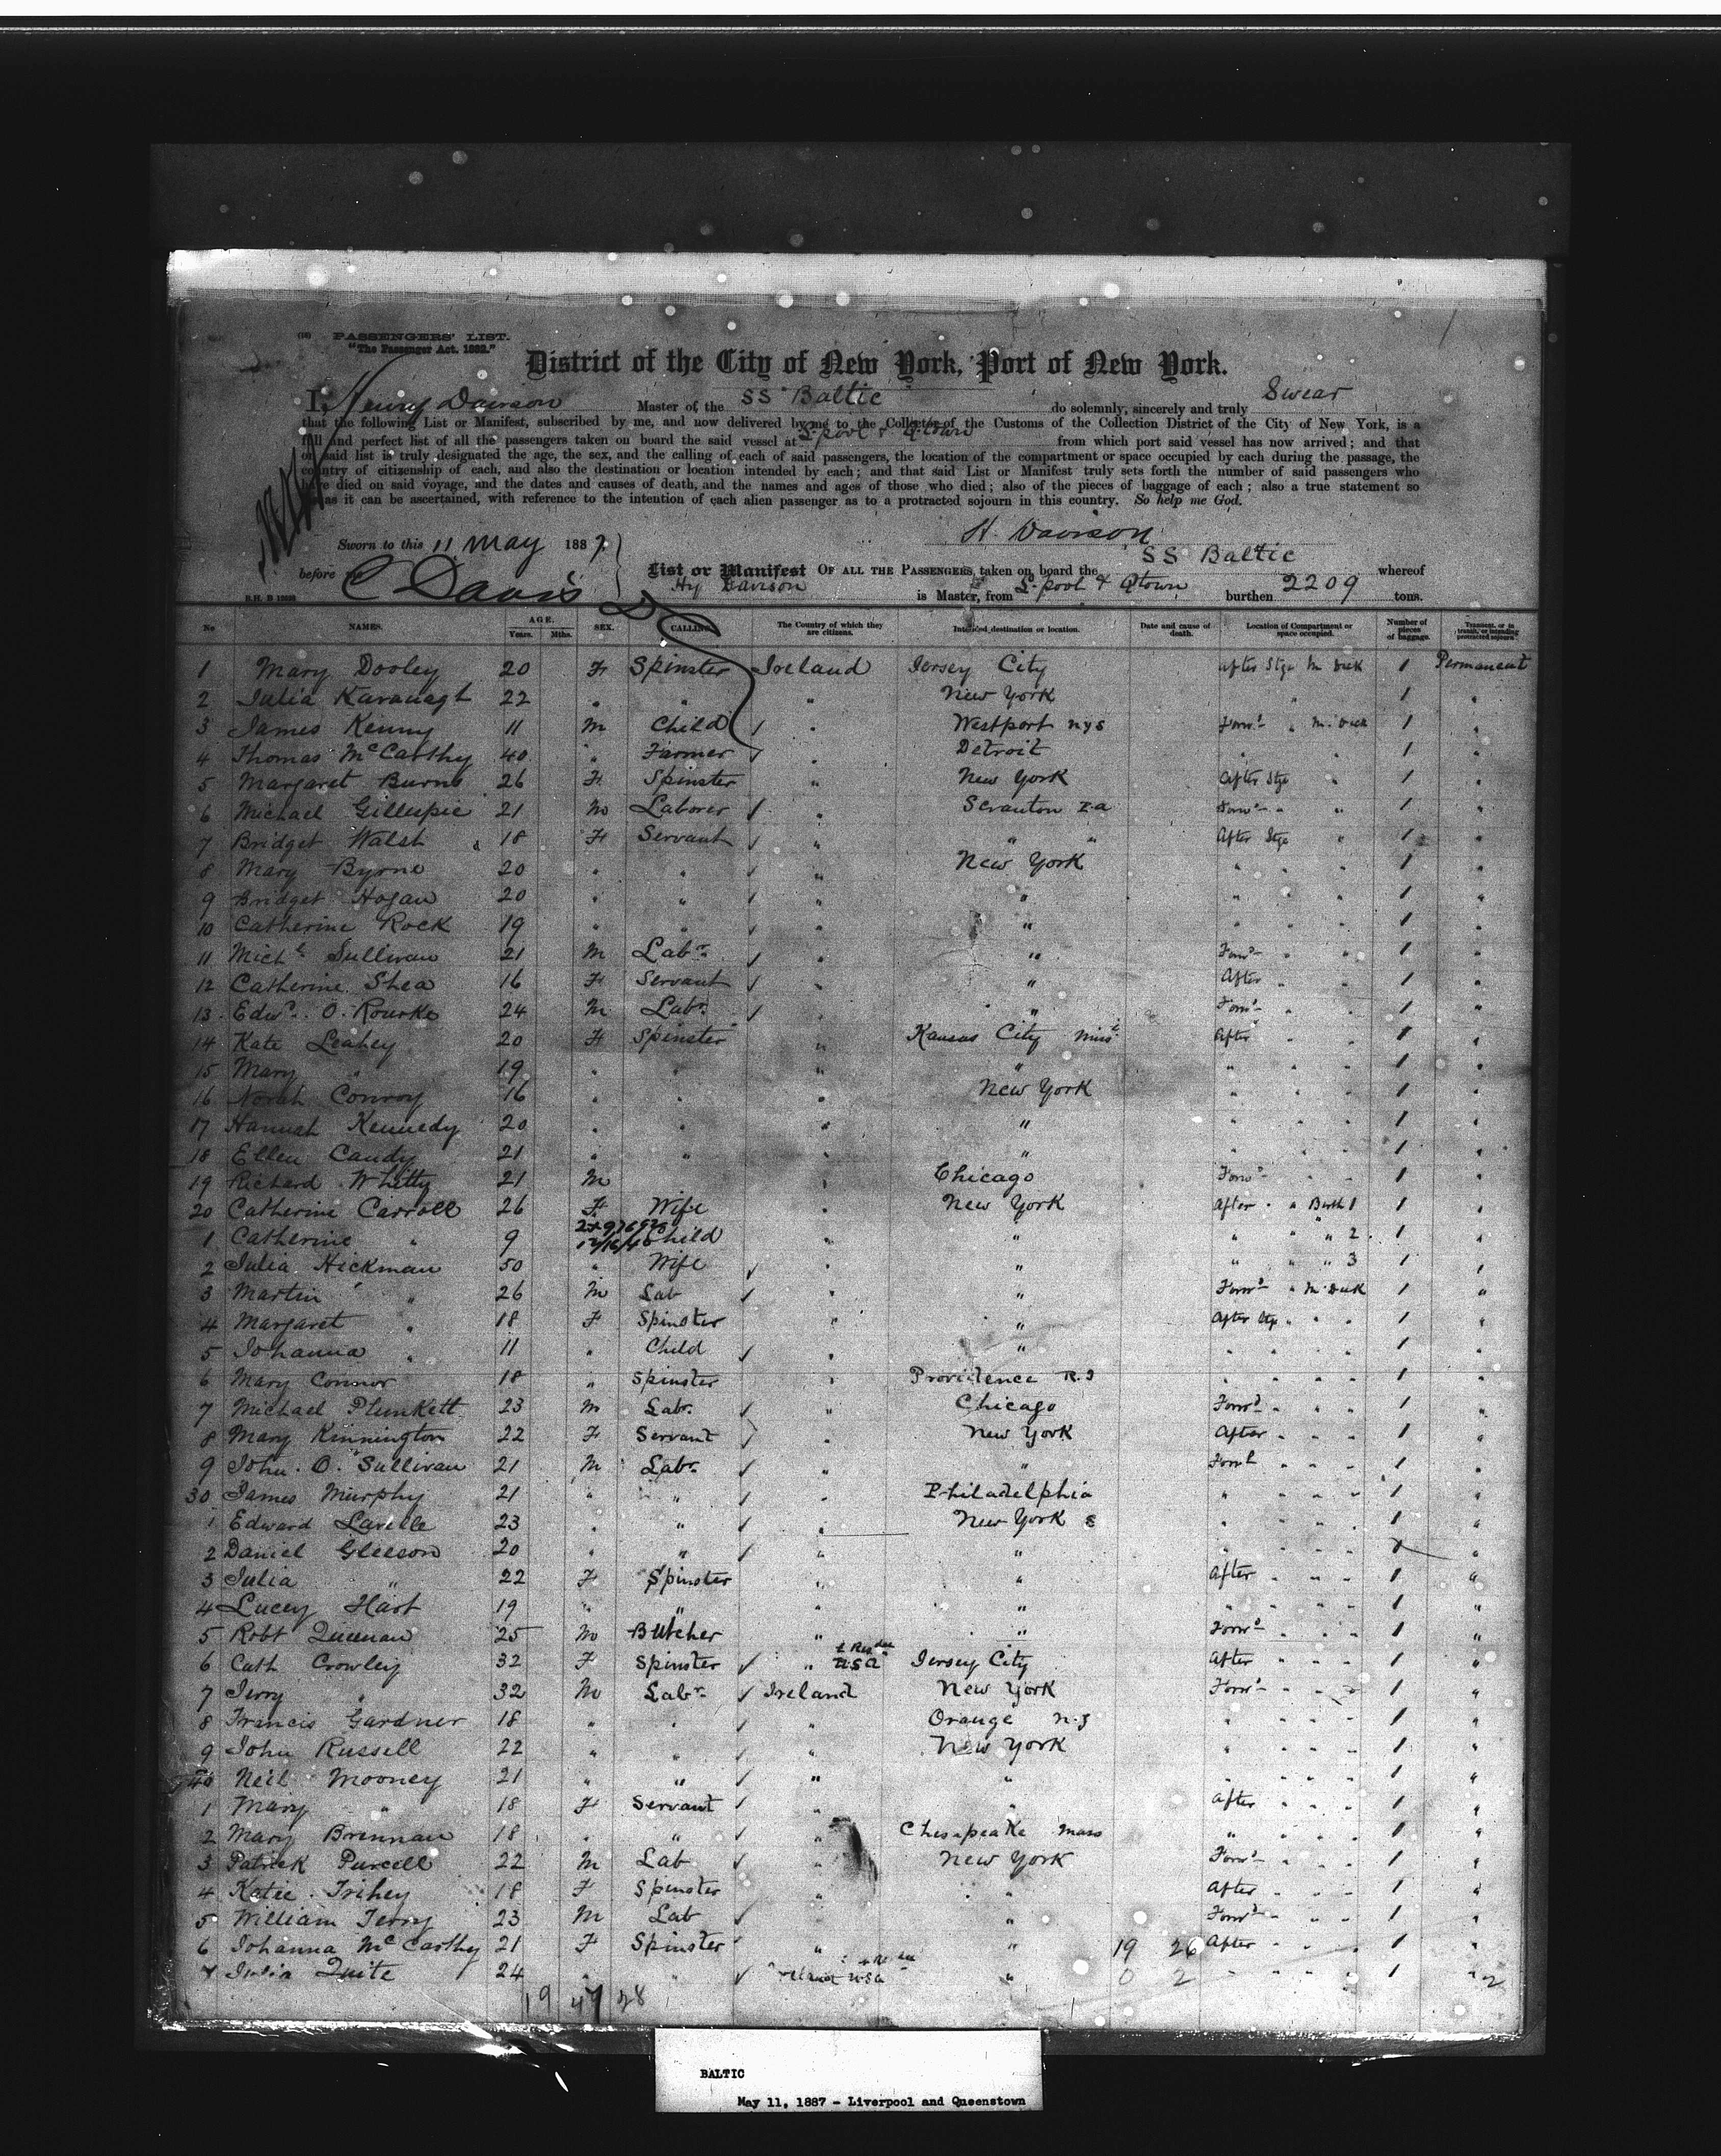 PASSENGERS' LIST.
"The Passenger Act. 1882."
District of the City of New York, Port of New York.
I, Henry Davison Master of the SS Baltic do solemnly, sincerely and truly Swear
that the following List or Manifest, subscribed by me, and now delivered by me to the Collector of the Customs of the Collection District of the City of New York, is a
full and perfect list of all the passengers taken on board the said vessel at L'pool & Q.town from which port said vessel has now arrived; and that
on said list is truly designated the age, the sex, and the calling of each of said passengers, the location of the compartment or space occupied by each during the passage, the
country of citizenship of each, and also the destination or location intended by each; and that said List or Manifest truly sets forth the number of said passengers who
have died on said voyage, and the dates and causes of death, and the names and ages of those who died; also of the pieces of baggage of each; also a true statement so
as it can be ascertained, with reference to the intention of each alien passenger as to a protracted sojourn in this country. So help me God.
H. Davison
Sworn to this 11 May 1887
before C Davis
List or Manifest OF ALL THE PASSENGERS taken on board the SS Baltic whereof
Hy Davison is Master, from L'pool & Qtown burthen 2209 tons.
No NAMES. AGE. Years. Mths. SEX. CALLING. The Country of which they are citizens. Intended destination or location. Date and cause of death. Location of Compartment or space occupied. Number of pieces of baggage. Transient, or in transit, or intending protracted sojourn
1 Mary Dooley 20 F Spinster Ireland Jersey City After Stge M Deck 1 Permanent
2 Julia Kavanagh 22 " " " New York 1 "
3 James Kenny 11 M Child " Westport NYS Forwd " M. Deck 1 "
4 Thomas McCarthy 40 " Farmer " Detroit " " 1 "
5 Margaret Burns 26 F Spinster " New York After Stge " 1 "
6 Michael Gillespie 21 M Laborer " Scranton Pa Forwd " " 1 "
7 Bridget Walsh 18 F Servant " " " After Stge " 1 "
8 Mary Byrne 20 " " " New York " " " 1 "
9 Bridget Hogan 20 " " " " " " " 1 "
10 Catherine Rock 19 " " " " " " " 1 "
11 Michl Sullivan 21 M Labr " " Forwd " " 1 "
12 Catherine Shea 16 F Servant " " After " " 1 "
13 Edwd. O. Rourke 24 M Labr " " Forwd " " 1 "
14 Kate Leahey 20 F Spinster " Kansas City After " " 1 "
15 Mary " 19 " " " " " " " 1 "
16 Norah Conroy 16 " " " New York " " " 1 "
17 Hannah Kennedy 20 " " " " " " " 1 "
18 Ellen Candy 21 " " " " " " " 1 "
19 Richard Whitty 21 M " Chicago Forwd " " 1 "
20 Catherine Carroll 26 F Wife " New York After " " Berth 1 1 "
1 Catherine " 9 Child " " " " " 2 1 "
2 Julia Hickman 50 " Wife " " " " " 3 1 "
3 Martin " 26 M Lab " " Forwd " M. Deck 1 "
4 Margaret " 18 F Spinster " " After Stge " " 1 "
5 Johanna " 11 " Child " " " " " 1 "
6 Mary Connor 18 " Spinster " Providence R.I " " " 1 "
7 Michael Plunkett 23 M Labr. " Chicago Forwd " " " 1 "
8 Mary Kinnington 22 F Servant " New York After " " " 1 "
9 John. O. Sullivan 21 M Labr. " " Forwd " " " 1 "
30 James Murphy 21 " " " Philadelphia " " " " 1 "
1 Edward Lavelle 23 " " " New York " " " 1 "
2 Daniel Gleeson 20 " " " " " " " " 1 "
3 Julia " 22 F Spinster " " After " " " 1 "
4 Lucey Hart 19 " " " " " " " " 1 "
5 Robt 25 M Butcher " " Forwd " " " 1 "
6 Cath Crowley 32 F Spinster " USA Jersey City After " " " 1 "
7 Jerry " 32 M Labr Ireland New York Forwd " " " 1 "
8 Francis Gardner 18 " " " Orange N.J " " " " 1 "
9 John Russell 22 " " " New York " " " " 1 "
40 Neil Mooney 21 " " " " " " " " 1 "
1 Mary " 18 F Servant " " After " " " 1 "
2 Mary Brennan 18 " " " Chesapeake Mass " " " " 1 "
3 Patrick Purcell 22 M Lab " New York Forwd " " " 1 "
4 Katie Trihey 18 F Spinster " " After " " " 1 "
5 William Terry 23 M Lab " " Forwd " " " 1 "
6 Johanna McCarthy 21 F Spinster " " 19 26 After " " " 1 "
7 Julia Quite 24 " " Ireland USA " 0 2 " " " " 1 " 2
19 47 28
BALTIC
May 11, 1887 - Liverpool and Queenstown